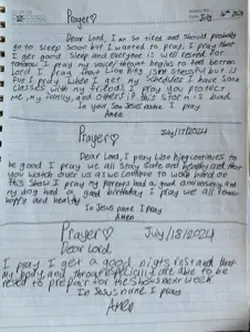 Prayer♡ July 16th 2024
Dear Lord, I am so tired and should probably
go to sleep soon but I wanted to pray. I pray that
I get good sleep and everyone is well rested for
tomorrow I pray my voice/throat begins to feel better
Lord I pray that Lion King isn't stressful but is
fun I pray when I get my schedule I have some
classes with my friends I pray you protect
me, my family, and others if this storm is bad
In your son Jesus name I pray
Amen
Prayer♡ July/17/2024
Dear Lord, I pray Lion King continues to
be good I pray we all stay safe and healthy and that
you watch over us as we continue to work hard on
this show I pray my parents had a good anniversary and
my dog had a good birthday I pray we all remain
happy and healthy
In Jesus name I pray
Amen
Prayer♡ July/18/2024
Dear Lord,
I pray I get a good nights rest and that
my body and throat especially are able to be
rested to prepare for the shows next week.
In Jesus name I pray
Amen